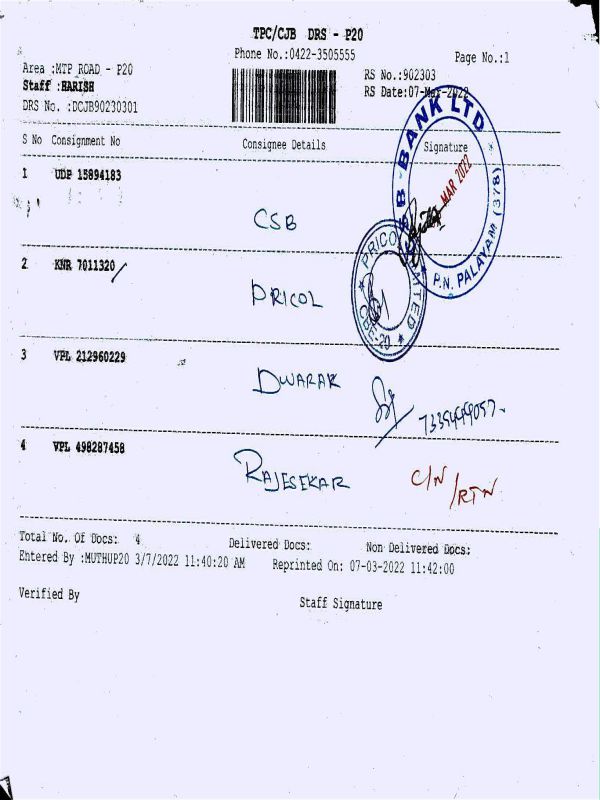 TPC/CJB DRS - P20
Phone No.:0422-3505555
Page No.:1
Area :MTP ROAD - P20
RS No.:902303
Staff :HARISH
RS Date:07-Mar-2022
DRS No. :DCJB90230301
S No Consignment No Consignee Details Signature
1 UDP 15894183
CSB
CSB BANK LTD
P.N. PALAYAM (378)
MAR 2022
2 KNR 7011320
PRICOL
PRICOL LIMITED
CBE-20
3 VPL 212960229
DWARAK
4 VPL 498287458
RAJESEKAR
C/N
/RTN
Total No. Of Docs: 4 Delivered Docs: Non Delivered Docs:
Entered By :MUTHUP20 3/7/2022 11:40:20 AM Reprinted On: 07-03-2022 11:42:00
Verified By
Staff Signature